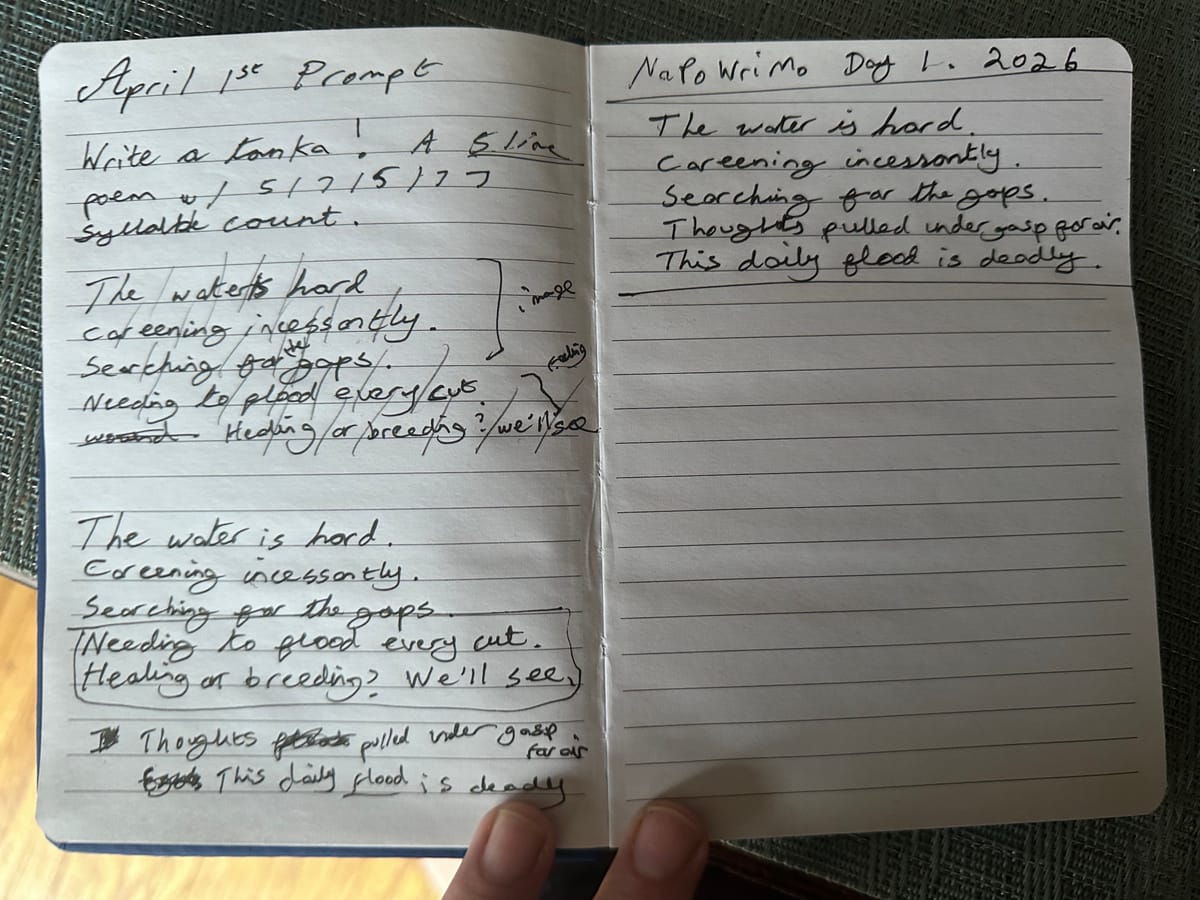 April 1st Prompt
Write a tanka! A 5 line
poem w/ 5/7/5/7 7
syllable count.
The water is hard
careening incessantly.
Searching for the gaps.
Needing to flood every cut.
Healing or breeding? we'll see
image
feeling
The water is hard.
Careening incessantly.
Searching for the gaps.
Needing to flood every cut.
Healing or breeding? We'll see.
Thoughts pulled under gasp
for air
This daily flood is deadly
NaPoWriMo Day 1. 2026
The water is hard.
Careening incessantly.
Searching for the gaps.
Thoughts pulled under gasp for air.
This daily flood is deadly.